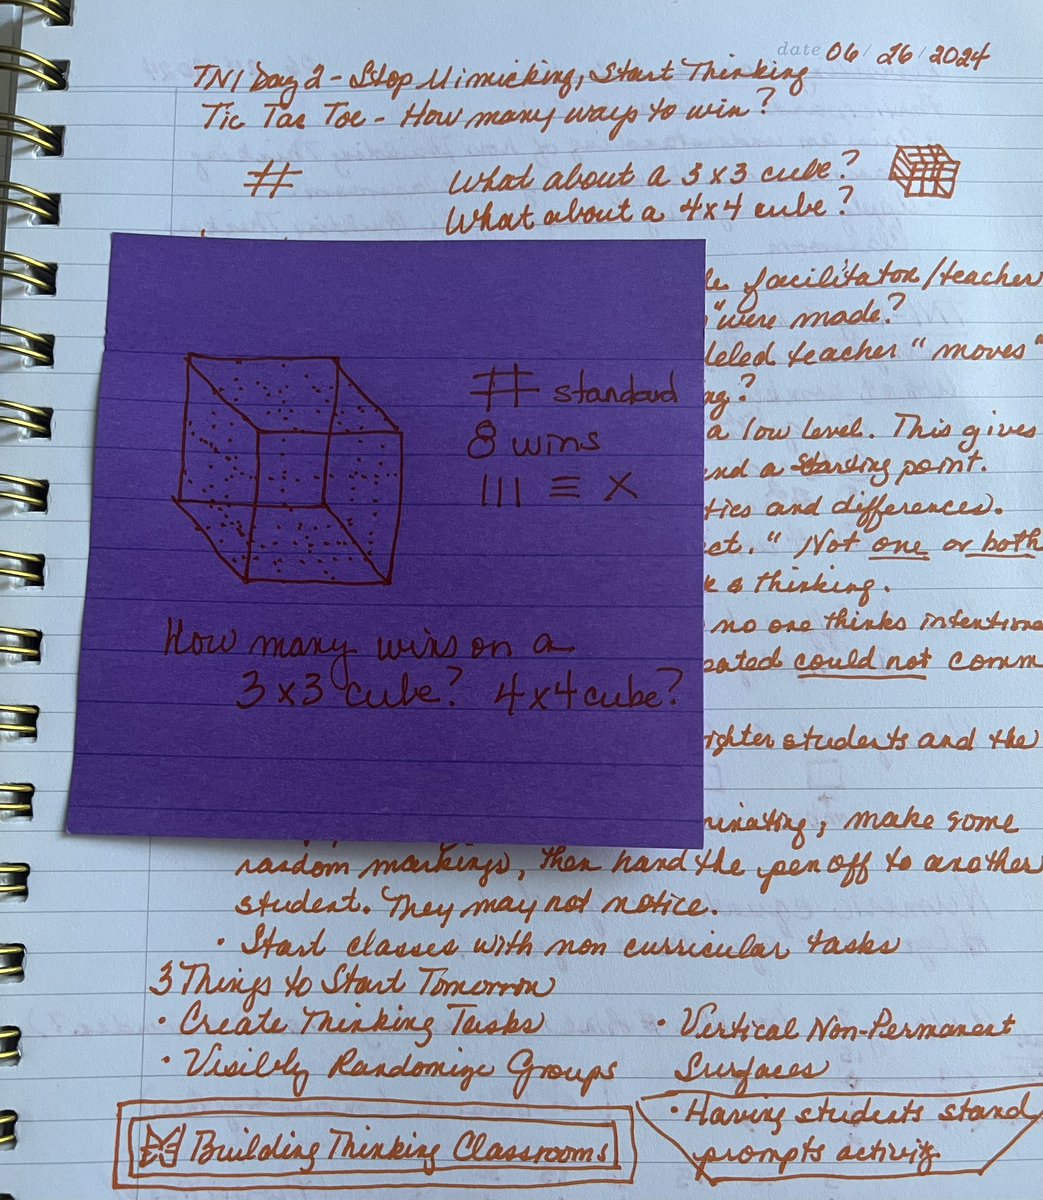 date 06/26/2024
TNI Day 2 - Stop Mimicking, Start Thinking
Tic Tac Toe - How many ways to win?
# What about a 3x3 cube?
What about a 4x4 cube?
facilitator/teacher
" were made?
teacher "moves"
# standard
8 wins
||| ≡ X
a low level. This gives
and a starting point.
and differences.
" Not one or both
& thinking.
no one thinks
could not comm
How many wins on a
3x3 cube? 4x4 cube?
students and the
make some
random markings, then hand the pen off to another
student. They may not notice.
• Start classes with non curricular tasks
3 Things to Start Tomorrow
• Create Thinking Tasks
• Visibly Randomize Groups
• Vertical Non-Permanent
Surfaces
Building Thinking Classrooms
• Having students stand
prompts activity